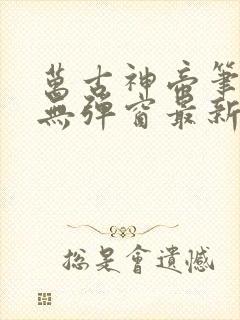 萬古神帝筆
無彈窗最新
總是會遺憾